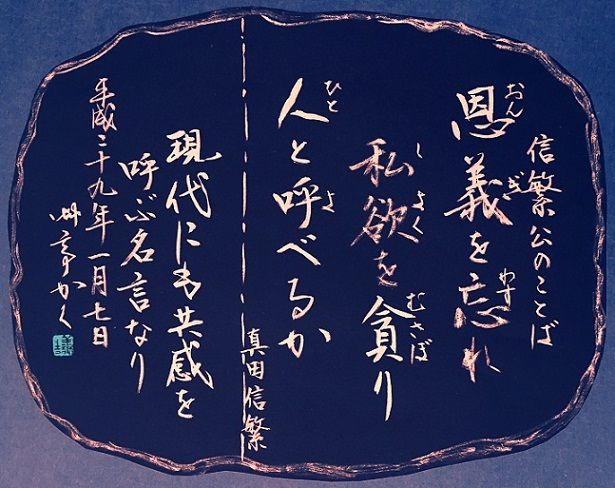 信繁公のことば
恩義を忘れ
私欲を貪り
人と呼べるか
真田信繁
現代にも共感を
呼ぶ名言なり
平成二十九年一月七日
かく